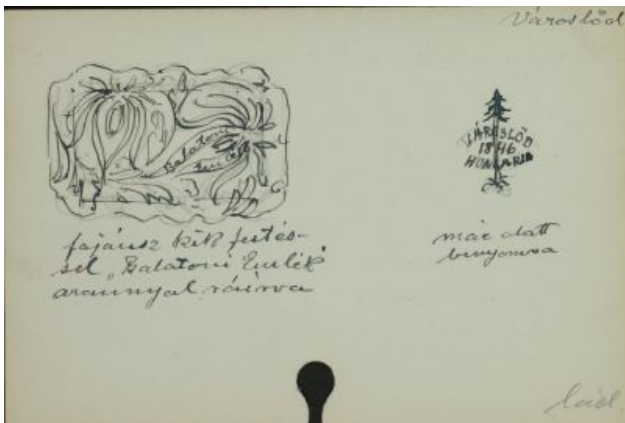 Városlőd
Balatoni
Emlék
VÁROSLŐD
1846
HUNGARIA
fajánsz kék festés-
sel „Balatoni Emlék”
arannyal ráírva
már alatt
benyomva